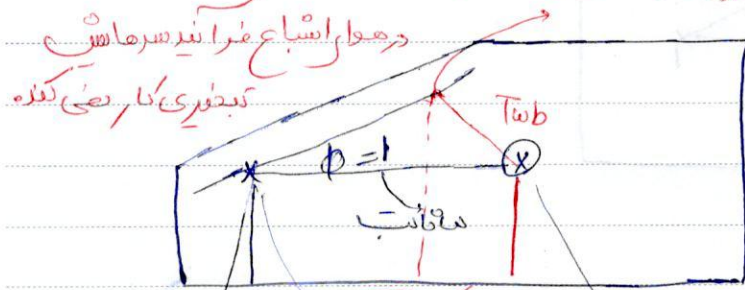 در هوای اشباع فرآیند سرمایش
تبخیری کار نمی کند
Twb
φ = 1
ثابت